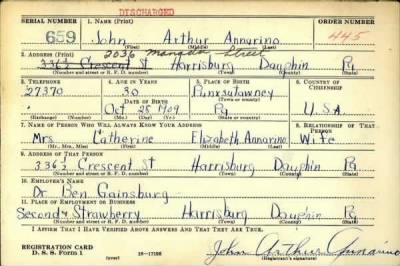 DISCHARGED
SERIAL NUMBER 1. Name (Print) ORDER NUMBER
659 John Arthur Annarino 445
(First) (Middle) (Last)
2036 Mangan Street
2. Address (Print)
336½ Crescent St Harrisburg Dauphin Pa
(Number and street or R. F. D. number) (Town) (County) (State)
3. Telephone 4. Age in Years 5. Place of Birth 6. Country of Citizenship
27370 30 Punxsutawney
(Town or county)
Date of Birth
Oct 25 1909 Pa U.S.A.
(Mo.) (Day) (Yr.) (State or country)
7. Name of Person Who Will Always Know Your Address 8. Relationship of That Person
Mrs Catherine Elizabeth Annarino Wife
(Mr., Mrs., Miss) (First) (Middle) (Last)
9. Address of That Person
336½ Crescent St Harrisburg Dauphin Pa
(Number and street or R. F. D. number) (Town) (County) (State)
10. Employer's Name
Dr. Ben Gainsburg
11. Place of Employment or Business
Second & Strawberry Harrisburg Dauphin Pa
(Number and street or R. F. D. number) (Town) (County) (State)
I Affirm That I Have Verified Above Answers and That They Are True.
REGISTRATION CARD
D. S. S. Form 1 (over) 16—17105
John Arthur Annarino
(Registrant's signature)